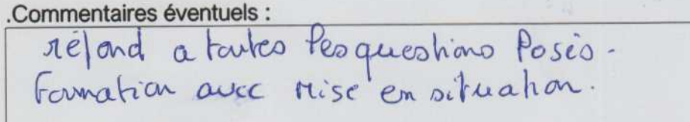 .Commentaires éventuels :
répond a toutes les questions Posés.
Formation avec mise en situation.